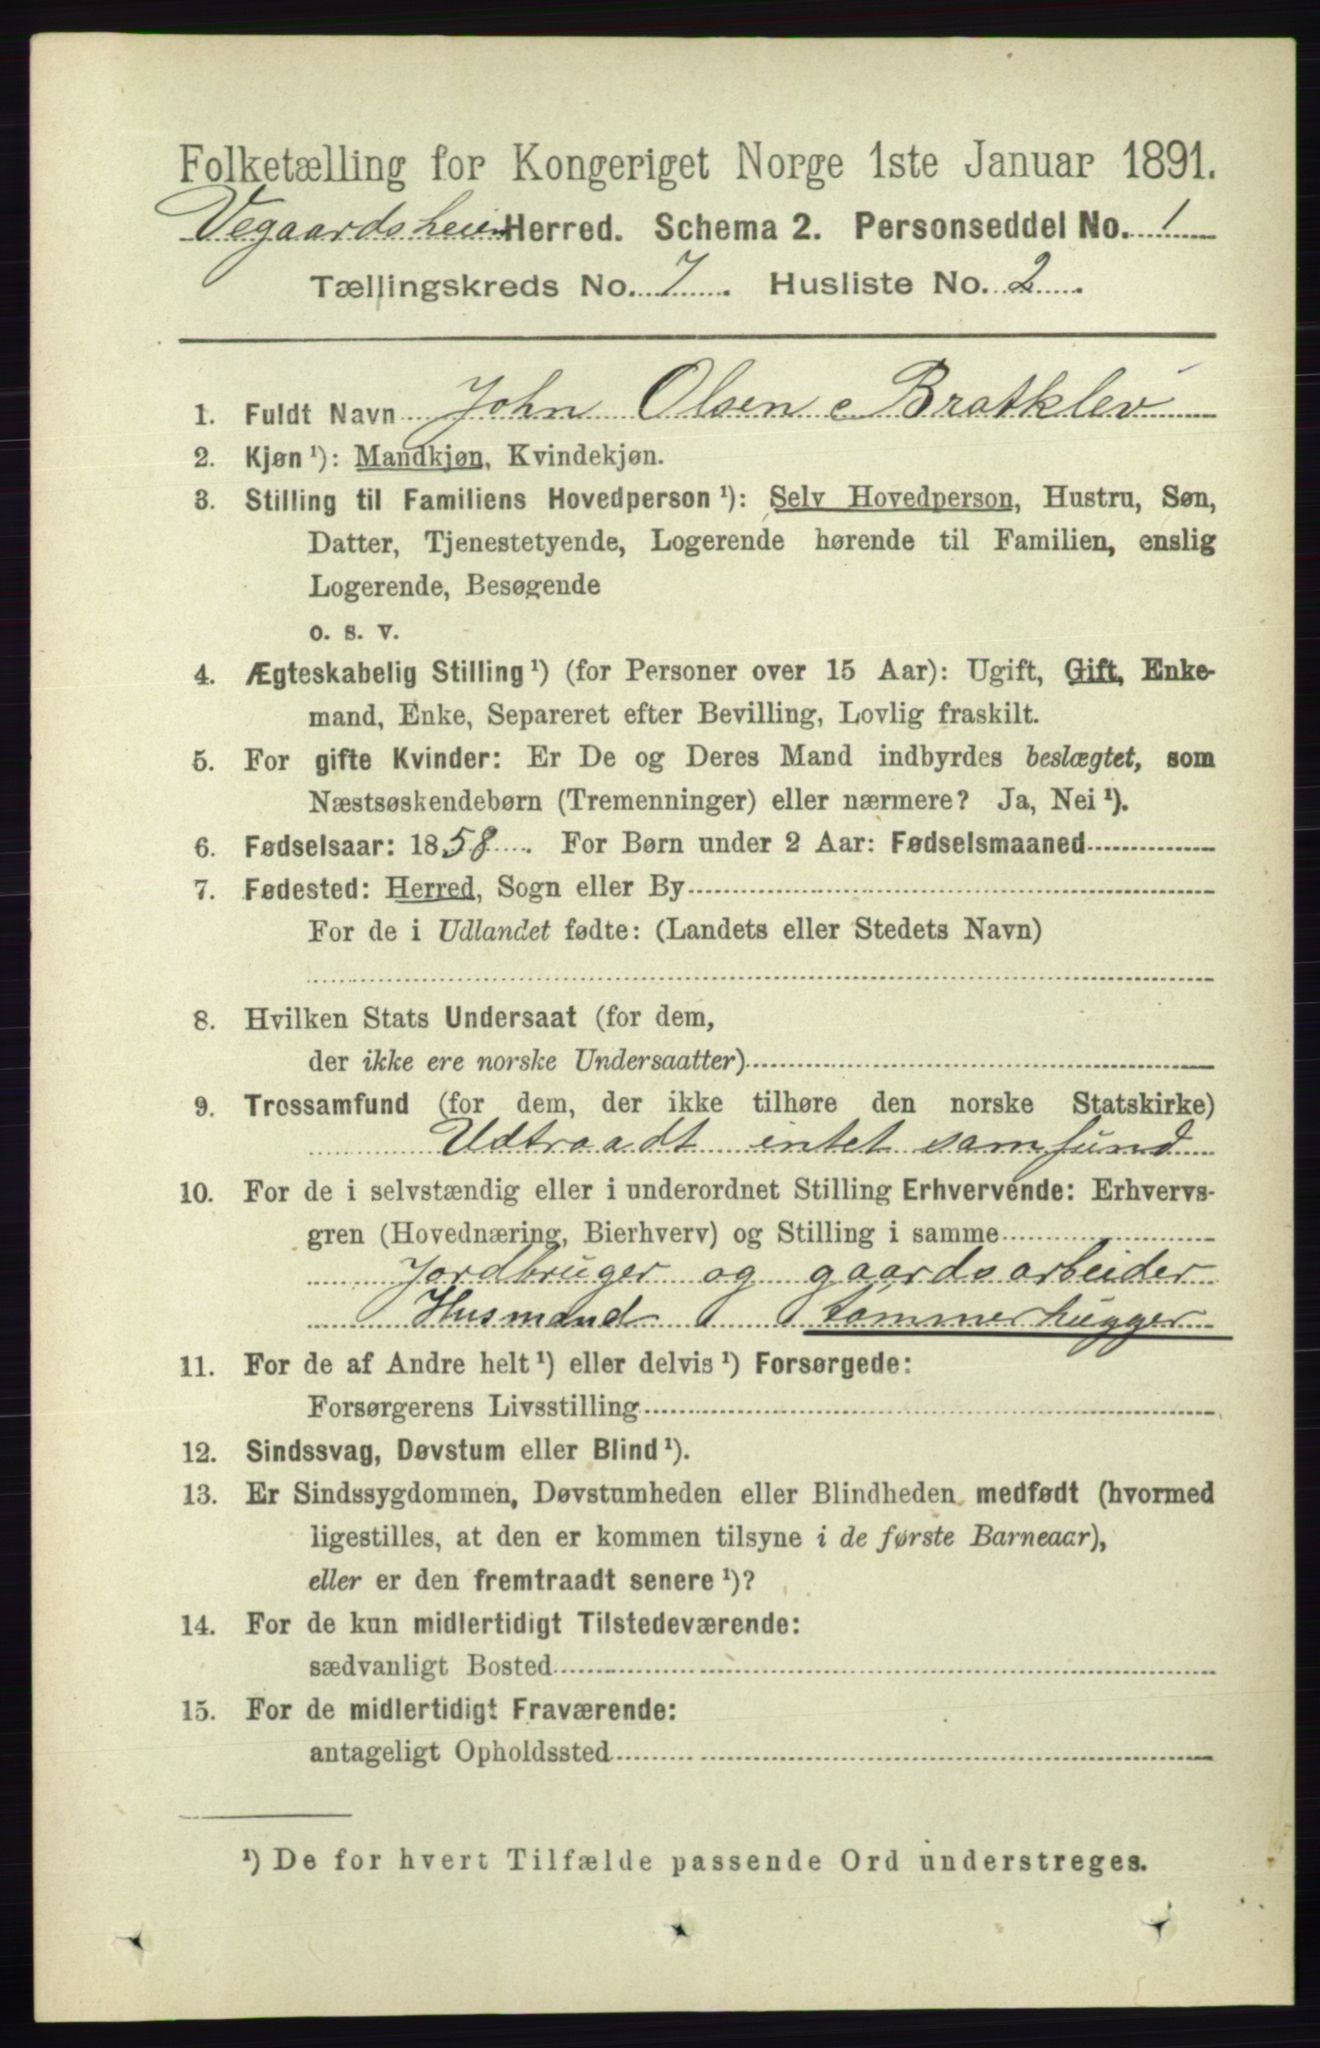 Folketælling for Kongeriget Norge 1ste Januar 1891.
Vegaardsheien Herred. Schema 2. Personseddel No. 1
Tællingskreds No. 7. Husliste No. 2.
1. Fuldt Navn John Olsen Bratklev
2. Kjøn ¹): Mandkjøn, Kvindekjøn.
3. Stilling til Familiens Hovedperson ¹): Selv Hovedperson, Hustru, Søn,
Datter, Tjenestetyende, Logerende hørende til Familien, enslig
Logerende, Besøgende
o. s. v.
4. Ægteskabelig Stilling ¹) (for Personer over 15 Aar): Ugift, Gift, Enke-
mand, Enke, Separeret efter Bevilling, Lovlig fraskilt.
5. For gifte Kvinder: Er De og Deres Mand indbyrdes beslægtet, som
Næstsøskendebørn (Tremenninger) eller nærmere? Ja, Nei ¹).
6. Fødselsaar: 1858. For Børn under 2 Aar: Fødselsmaaned
7. Fødested: Herred, Sogn eller By
For de i Udlandet fødte: (Landets eller Stedets Navn)
8. Hvilken Stats Undersaat (for dem,
der ikke ere norske Undersaatter)
9. Trossamfund (for dem, der ikke tilhøre den norske Statskirke)
Udtraadt intet samfund
10. For de i selvstændig eller i underordnet Stilling Erhvervende: Erhvervs-
gren (Hovednæring, Bierhverv) og Stilling i samme
Jordbruger og gaardsarbeider
Husmand tømmerhugger
11. For de af Andre helt ¹) eller delvis ¹) Forsørgede:
Forsørgerens Livsstilling
12. Sindssvag, Døvstum eller Blind ¹).
13. Er Sindssygdommen, Døvstumheden eller Blindheden medfødt (hvormed
ligestilles, at den er kommen tilsyne i de første Barneaar),
eller er den fremtraadt senere ¹)?
14. For de kun midlertidigt Tilstedeværende:
sædvanligt Bosted
15. For de midlertidigt Fraværende:
antageligt Opholdssted
¹) De for hvert Tilfælde passende Ord understreges.